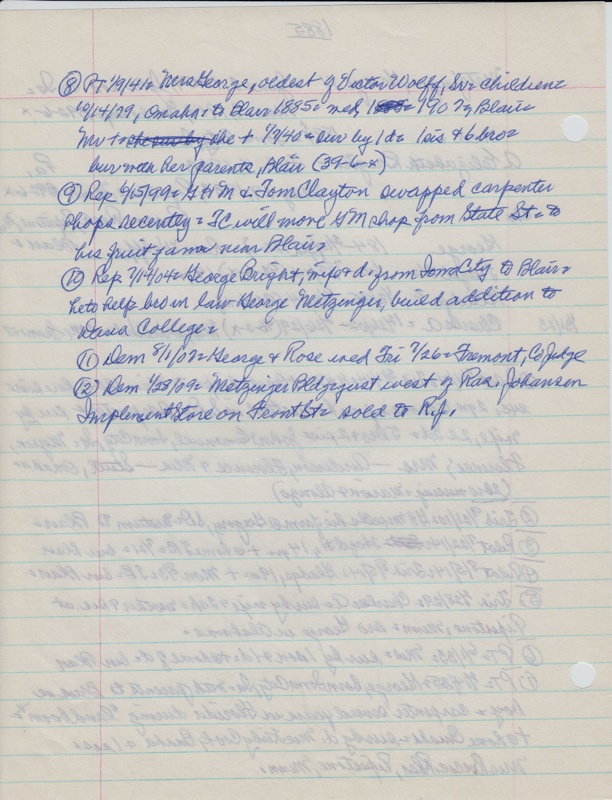 1885
⑧ PT 1/9/41= Mrs George, oldest of Victor Wolff, Sr= children=
10/14/79, Omaha= to Blair 1885= wed, 1885= 1907, Blair=
Mv to she + 1/7/40= sur by 1d= 1sis + 6 bro=
bur with her parents, Blair (39-6-x)
⑨ Rep 6/15/99= GHM & Tom Clayton swapped carpenter
shops recently= TC will move GM shop from State St= to
his fruit farm near Blair=
⑩ Rep 7/14/04= George Bright, wife + d, from Iowa City to Blair=
he to help bro in law George Metzinger, build addition to
Dana College=
⑪ Dem 8/1/07= George & Rose wed Fri 7/26= Fremont, Co Judge
⑫ Dem 1/28/09= Metzinger Bldg just west of Ras. Johansen
Implement Store on Front St= sold to R.J.